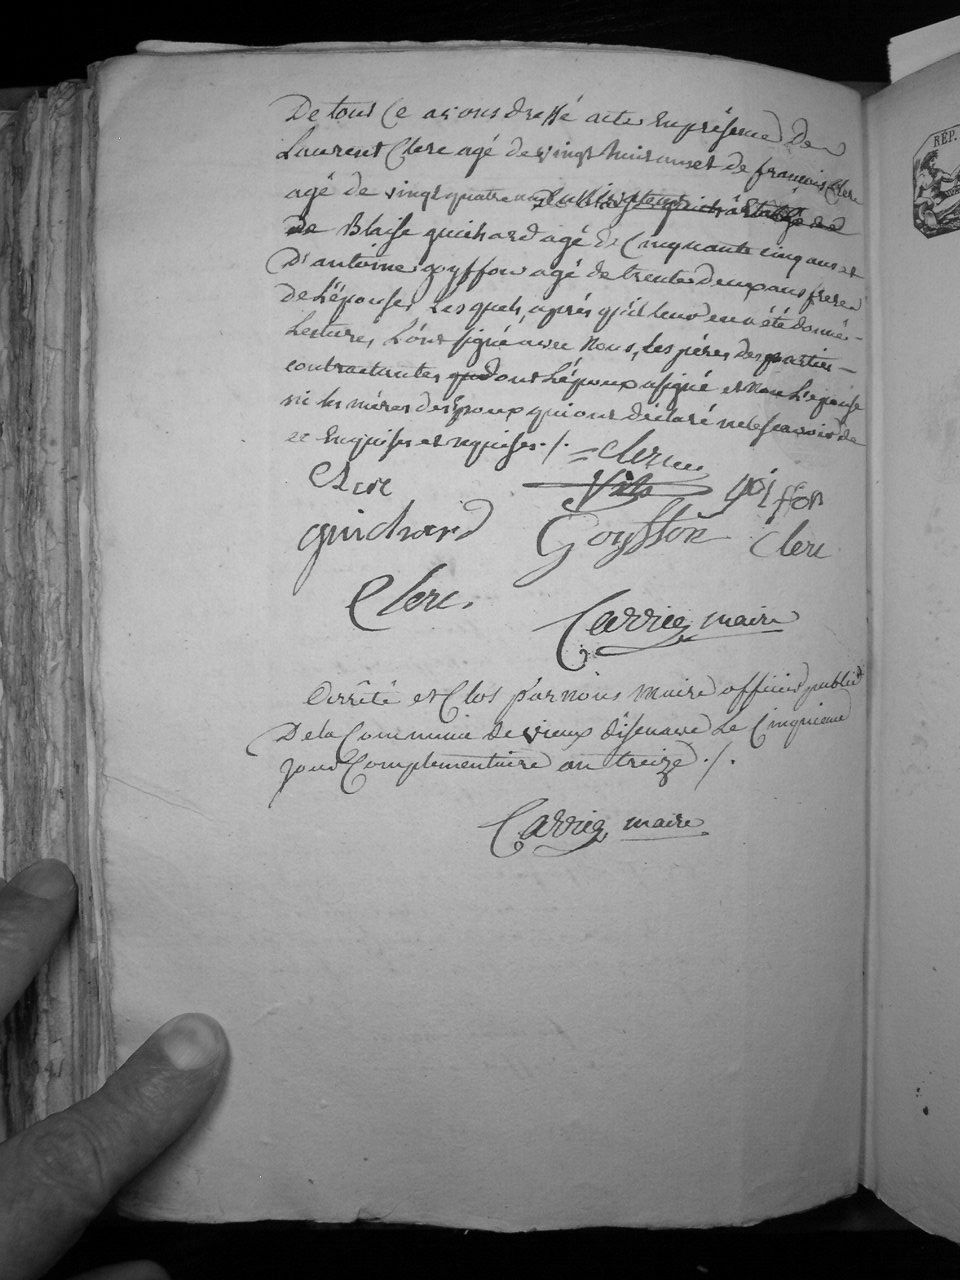 De tout Ce avons dressé acte En présence De
Laurent Clerc agé de vingt huit ans et de françois Clerc
agé de vingt quatre ans
De Blaise guichard agé de Cinquante cinq ans et
D'antoine goyffon agé de trente deux ans frere
de L'épouse, Lesquels, aprés qu'il leur en a été donné
Lecture, L'ont signé avec Nous, Les péres des parties
contractantes dont L'époux a signé et Non L'epouse
ni les méres des Epoux qui ont déclaré ne le scavoir de
ce Enquises et requises ./.
= Clerc
Clerc
goiffon
guichard Goyffon Clerc
Clerc.
Carrier, maire
Arrêté et Clos par nous maire officier public
De la Commune de vieux d'isenave Le Cinquieme
jour Complementaire an treize ./.
Carrier, maire
RÉP.